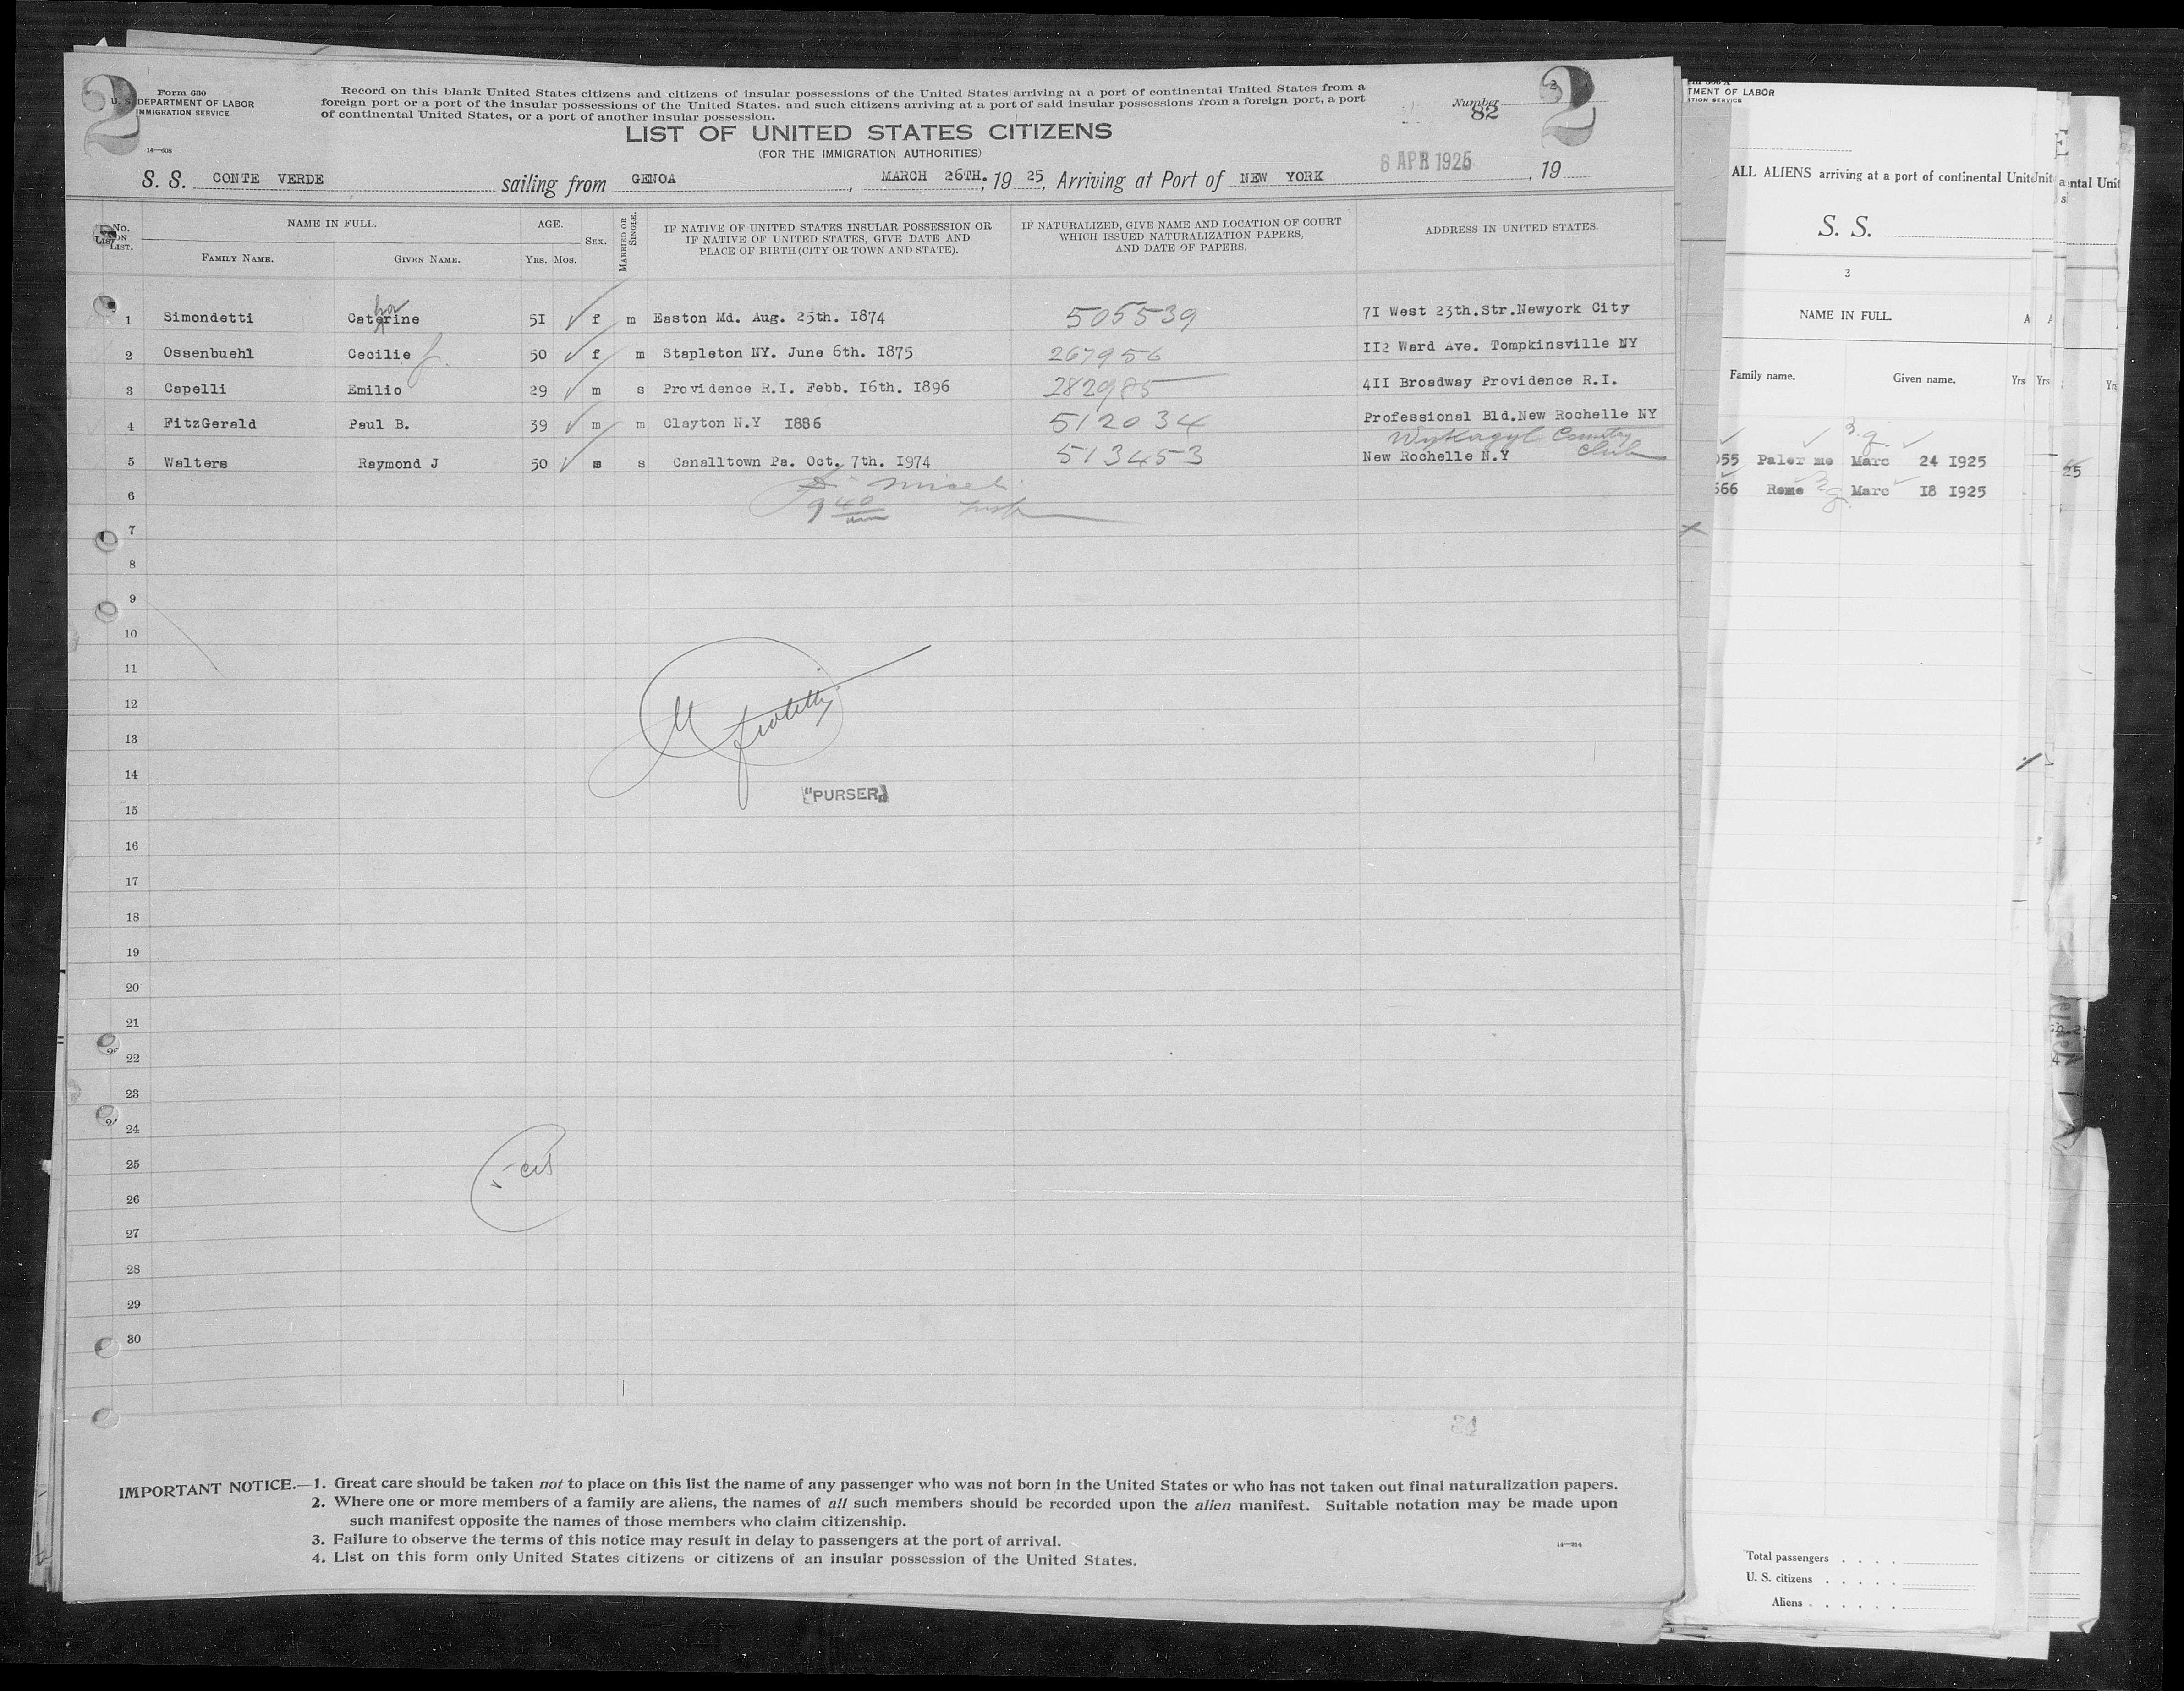 2
Form 630
U. S. DEPARTMENT OF LABOR
IMMIGRATION SERVICE
14—608
Record on this blank United States citizens and citizens of insular possessions of the United States arriving at a port of continental United States from a
foreign port or a port of the insular possessions of the United States. and such citizens arriving at a port of said insular possessions from a foreign port, a port
of continental United States, or a port of another insular possession.
Number 82
2
LIST OF UNITED STATES CITIZENS
(FOR THE IMMIGRATION AUTHORITIES)
S. S. CONTE VERDE sailing from GENOA, MARCH 26TH., 19 25, Arriving at Port of NEW YORK 6 APR 1925, 19
No. ON LIST.
NAME IN FULL.
FAMILY NAME. GIVEN NAME.
AGE.
YRS. MOS.
SEX.
MARRIED OR SINGLE.
IF NATIVE OF UNITED STATES INSULAR POSSESSION OR
IF NATIVE OF UNITED STATES, GIVE DATE AND
PLACE OF BIRTH (CITY OR TOWN AND STATE).
IF NATURALIZED, GIVE NAME AND LOCATION OF COURT
WHICH ISSUED NATURALIZATION PAPERS,
AND DATE OF PAPERS.
ADDRESS IN UNITED STATES.
1 Simondetti Caterine 51 f m Easton Md. Aug. 25th. 1874 505539 71 West 23th.Str.Newyork City
2 Ossenbuehl Cecilie 50 f m Stapleton NY. June 6th. 1875 267956 112 Ward Ave. Tompkinsville NY
3 Capelli Emilio 29 m s Providence R.I. Febb. 16th. 1896 282985 411 Broadway Providence R.I.
4 FitzGerald Paul B. 39 m m Clayton N.Y 1886 512034 Professional Bld.New Rochelle NY
Wykagyl Country Club
5 Walters Raymond J 50 m s Canalltown Pa. Oct. 7th. 1974 513453 New Rochelle N.Y
6
7
8
9
10
11
12
13
14
"PURSER"
15
16
17
18
19
20
21
22
23
24
25
26
27
28
29
30
IMPORTANT NOTICE.—1. Great care should be taken not to place on this list the name of any passenger who was not born in the United States or who has not taken out final naturalization papers.
2. Where one or more members of a family are aliens, the names of all such members should be recorded upon the alien manifest. Suitable notation may be made upon
such manifest opposite the names of those members who claim citizenship.
3. Failure to observe the terms of this notice may result in delay to passengers at the port of arrival.
4. List on this form only United States citizens or citizens of an insular possession of the United States.
14—214
TMENT OF LABOR
ATION SERVICE
ALL ALIENS arriving at a port of continental Unite
S. S.
3
NAME IN FULL.
Family name. Given name. Yrs
055 Palermo Marc 24 1925
566 Rome Marc 18 1925
Total passengers
U. S. citizens
Aliens
ental Unit
25